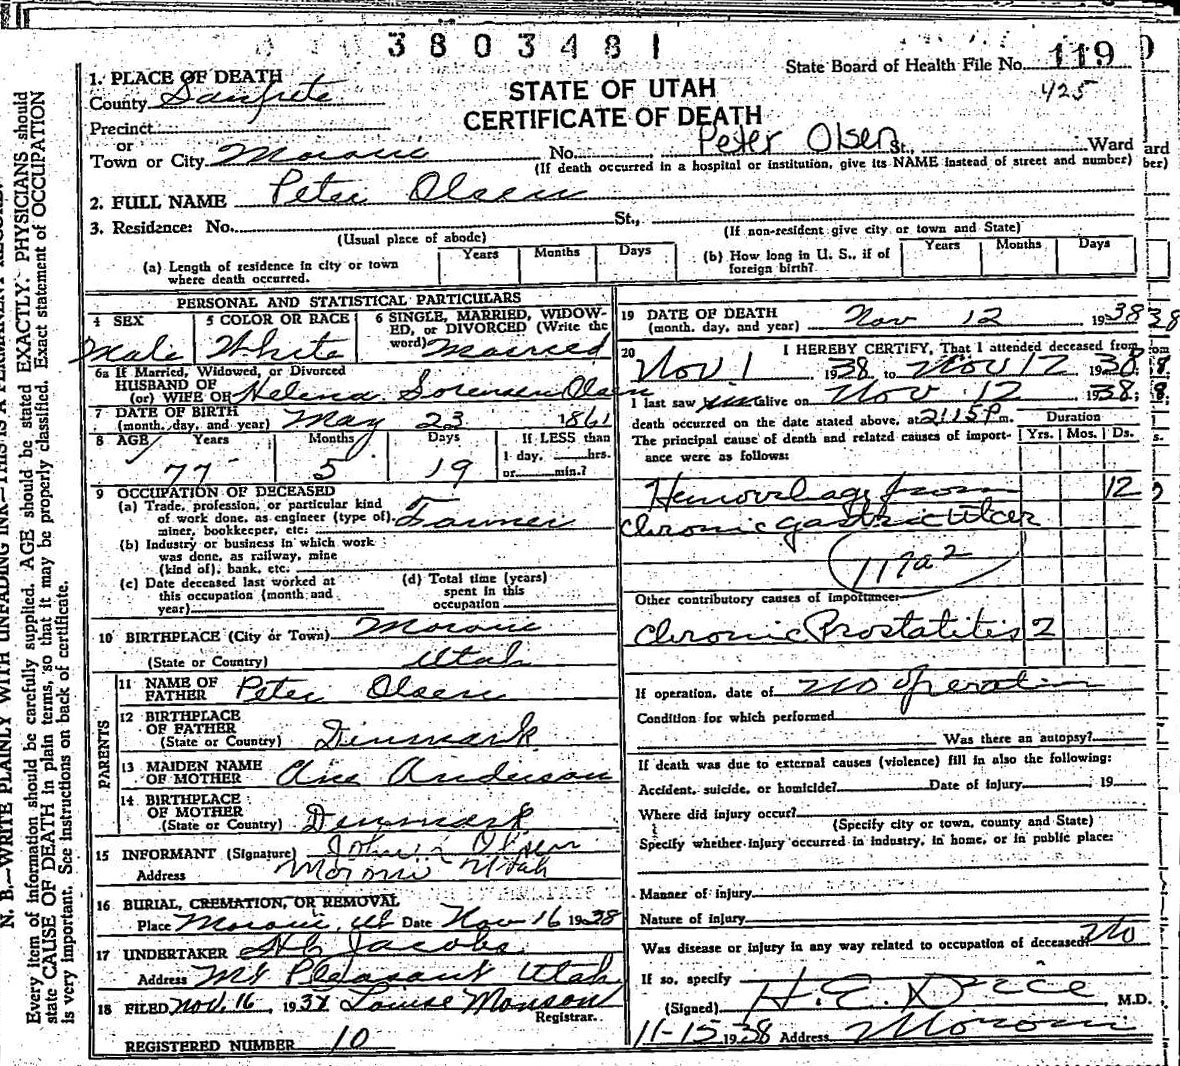 3803481
State Board of Health File No. 119
425
1. PLACE OF DEATH
County Sanpete
STATE OF UTAH
CERTIFICATE OF DEATH
Precinct
or
Town or City Moroni No. Peter Olsen St., Ward
(If death occurred in a hospital or institution, give its NAME instead of street and number)
2. FULL NAME Peter Olsen
3. Residence: No. St.,
(Usual place of abode) (If non-resident give city or town and State)
(a) Length of residence in city or town where death occurred. Years Months Days
(b) How long in U. S., if of foreign birth? Years Months Days
PERSONAL AND STATISTICAL PARTICULARS
4 SEX 5 COLOR OR RACE 6 SINGLE, MARRIED, WIDOW-
ED, or DIVORCED (Write the
word)
Male White Married
6a If Married, Widowed, or Divorced
HUSBAND OF
(or) WIFE OF Helena Sorensen Olsen
7 DATE OF BIRTH
(month, day, and year) May 23 1861
8 AGE Years Months Days If LESS than
1 day, hrs.
or min.?
77 5 19
9 OCCUPATION OF DECEASED
(a) Trade, profession, or particular kind
of work done, as engineer (type of),
miner, bookkeeper, etc. Farmer
(b) Industry or business in which work
was done, as railway, mine
(kind of), bank, etc.
(c) Date deceased last worked at
this occupation (month and
year)
(d) Total time (years)
spent in this
occupation
10 BIRTHPLACE (City or Town) Moroni
(State or Country) Utah
PARENTS
11 NAME OF
FATHER Peter Olsen
12 BIRTHPLACE
OF FATHER
(State or Country) Denmark
13 MAIDEN NAME
OF MOTHER Ane Anderson
14 BIRTHPLACE
OF MOTHER
(State or Country) Denmark
15 INFORMANT (Signature) Olsen
Address Moroni Utah
16 BURIAL, CREMATION, OR REMOVAL
Place Moroni, Ut Date Nov 16 1938
17 UNDERTAKER Jacobs
Address Mt Pleasant Utah
18 FILED Nov. 16, 193 Louise Monson
Registrar.
REGISTERED NUMBER 10
19 DATE OF DEATH
(month, day, and year) Nov 12 1938
20 I HEREBY CERTIFY, That I attended deceased from
Nov. 1 1938 to Nov 12 1938
I last saw him alive on Nov 12 1938;
death occurred on the date stated above, at 2:15 P m.
The principal cause of death and related causes of import-
ance were as follows:
Duration
Yrs. Mos. Ds.
Hemorrhage from 12
chronic gastric ulcer
117a2
Other contributory causes of importance:
Chronic Prostatitis 2
If operation, date of no operation
Condition for which performed
Was there an autopsy?
If death was due to external causes (violence) fill in also the following:
Accident, suicide, or homicide? Date of injury 19
Where did injury occur?
(Specify city or town, county and State)
Specify whether injury occurred in industry, in home, or in public place:
Manner of injury
Nature of injury
Was disease or injury in any way related to occupation of deceased? No
If so, specify
(Signed) H. E. M.D.
11-15 1938 Address Moroni
N. B.—WRITE PLAINLY WITH UNFADING INK—THIS IS A PERMANENT RECORD.
Every item of information should be carefully supplied. AGE should be stated EXACTLY. PHYSICIANS should
state CAUSE OF DEATH in plain terms, so that it may be properly classified. Exact statement of OCCUPATION
is very important. See instructions on back of certificate.